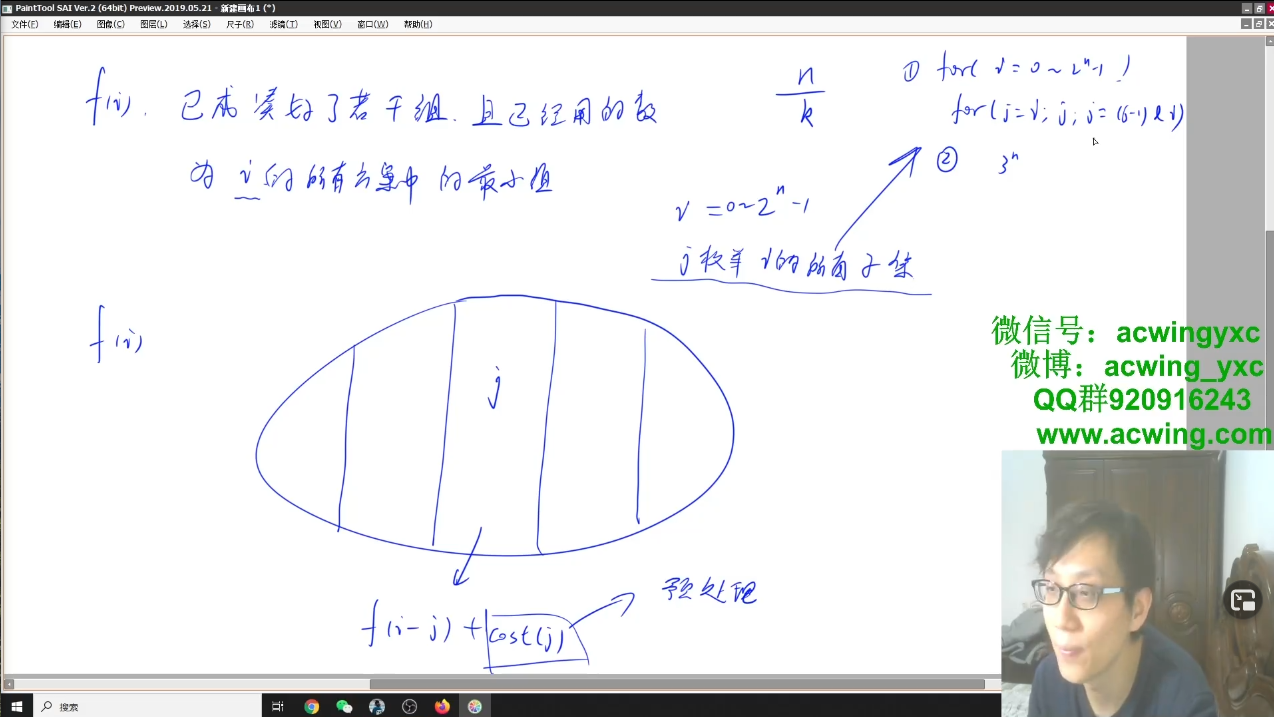 PaintTool SAI Ver.2 (64bit) Preview.2019.05.21 - 新建画布1 (*)
文件(F) 编辑(E) 图像(C) 图层(L) 选择(S) 尺子(R) 滤镜(T) 视图(V) 窗口(W) 帮助(H)
f(i). 已成凑好了若干组. 且已经用的数
为 i 的所有方案中的最小值
n
k
① for( i = 0 ~ 2^n-1 )
for( j = i; j; j = (j-1) & i)
② 3^n
i = 0~2^n-1
j枚举 i的所有子集
f(i)
j
f(i-j) + cost(j)
预处理
微信号: acwingyxc
微博: acwing_yxc
QQ群920916243
www.acwing.com
搜索